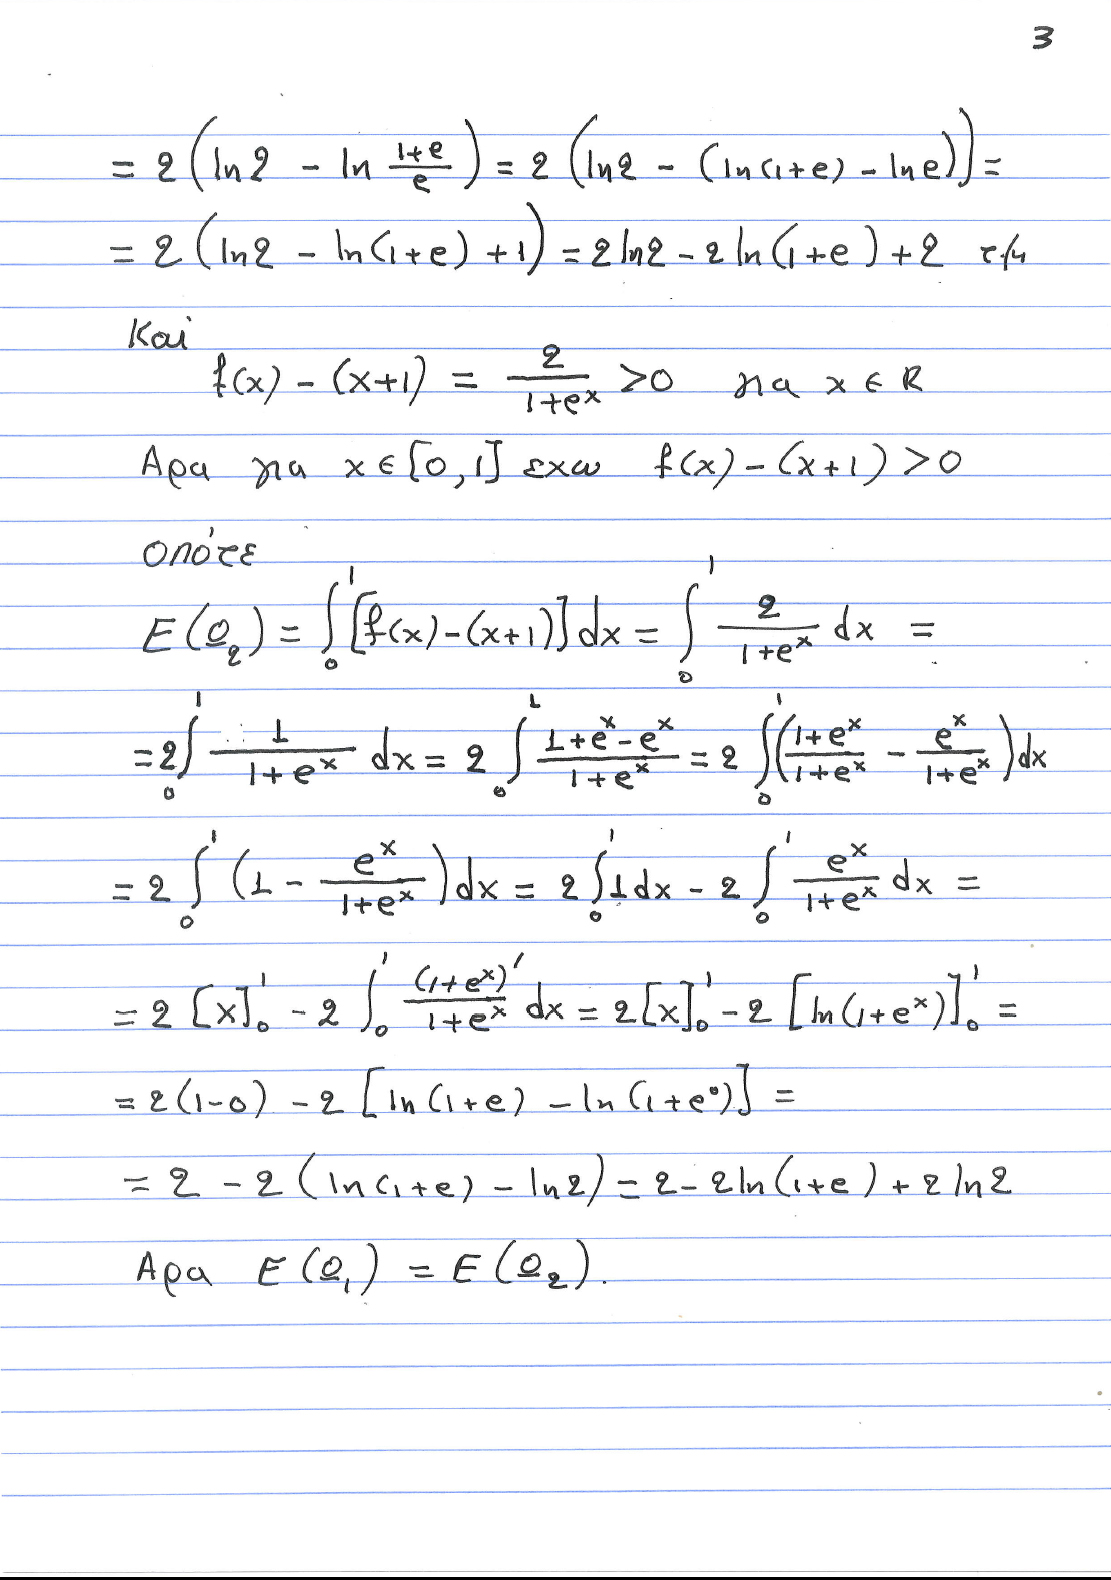 3
= 2 (ln2 - ln \frac{1+e}{e}) = 2 (ln2 - (ln(1+e) - lne)) =
= 2 (ln2 - ln(1+e) + 1) = 2ln2 - 2ln(1+e) + 2 τ.μ
Και
f(x) - (x+1) = \frac{2}{1+e^x} >0 για x ∈ R
Αρα για x ∈ [0,1] εχω f(x) - (x+1) >0
οπότε
E(Ω_2) = \int_0^1 [f(x)-(x+1)] dx = \int_0^1 \frac{2}{1+e^x} dx =
= 2\int_0^1 \frac{1}{1+e^x} dx = 2 \int_0^1 \frac{1+e^x-e^x}{1+e^x} = 2 \int_0^1 (\frac{1+e^x}{1+e^x} - \frac{e^x}{1+e^x}) dx
= 2 \int_0^1 (1 - \frac{e^x}{1+e^x}) dx = 2 \int_0^1 1 dx - 2 \int_0^1 \frac{e^x}{1+e^x} dx =
= 2 [x]_0^1 - 2 \int_0^1 \frac{(1+e^x)'}{1+e^x} dx = 2[x]_0^1 - 2 [ln(1+e^x)]_0^1 =
= 2(1-0) - 2 [ln(1+e) - ln(1+e^0)] =
= 2 - 2 (ln(1+e) - ln2) = 2 - 2ln(1+e) + 2ln2
Αρα E(Ω_1) = E(Ω_2).